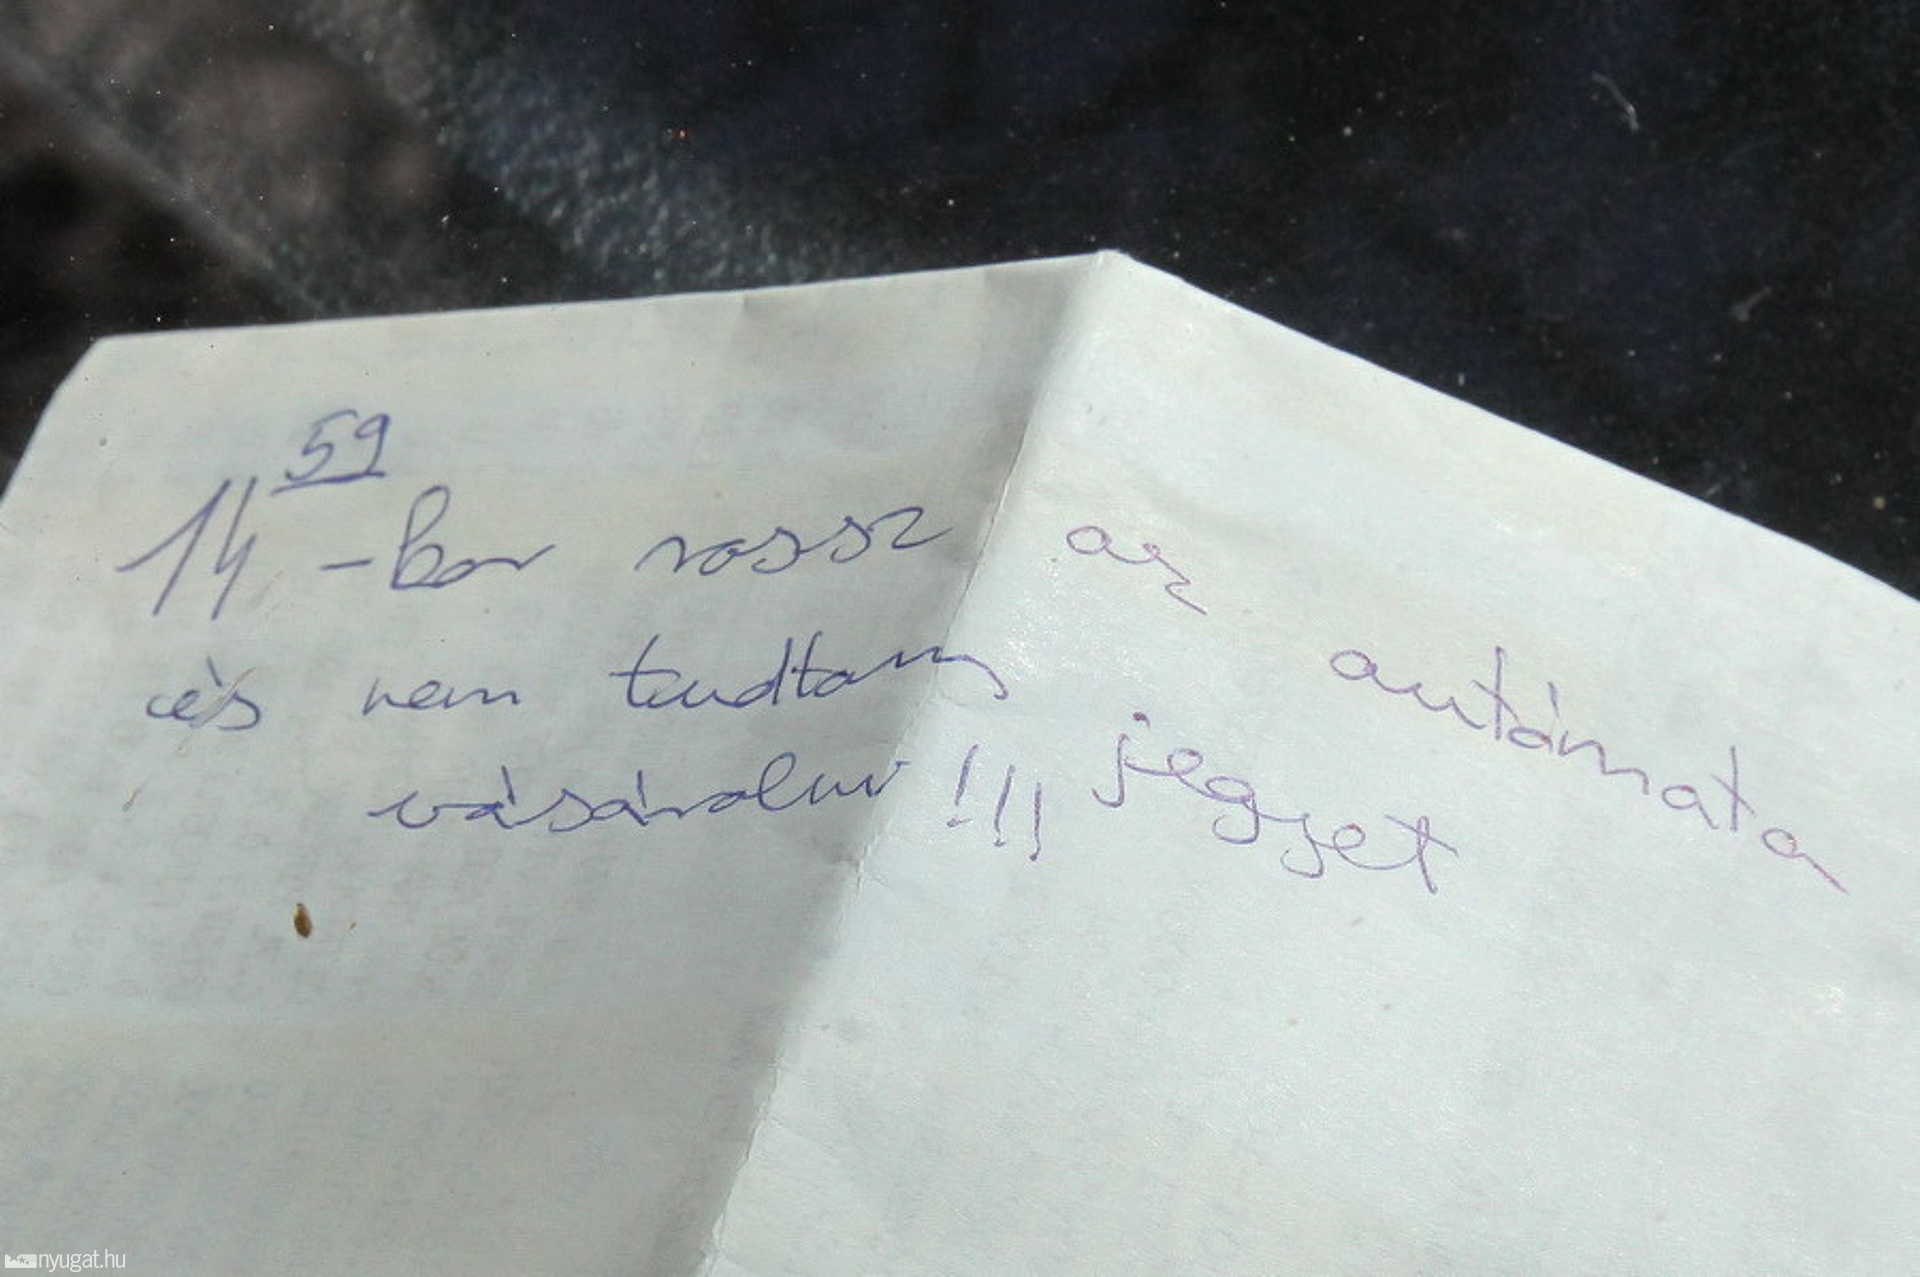 14⁵⁹-kor rossz az autómata
és nem tudtam jegyet
vásárolni!!!
nyugat.hu